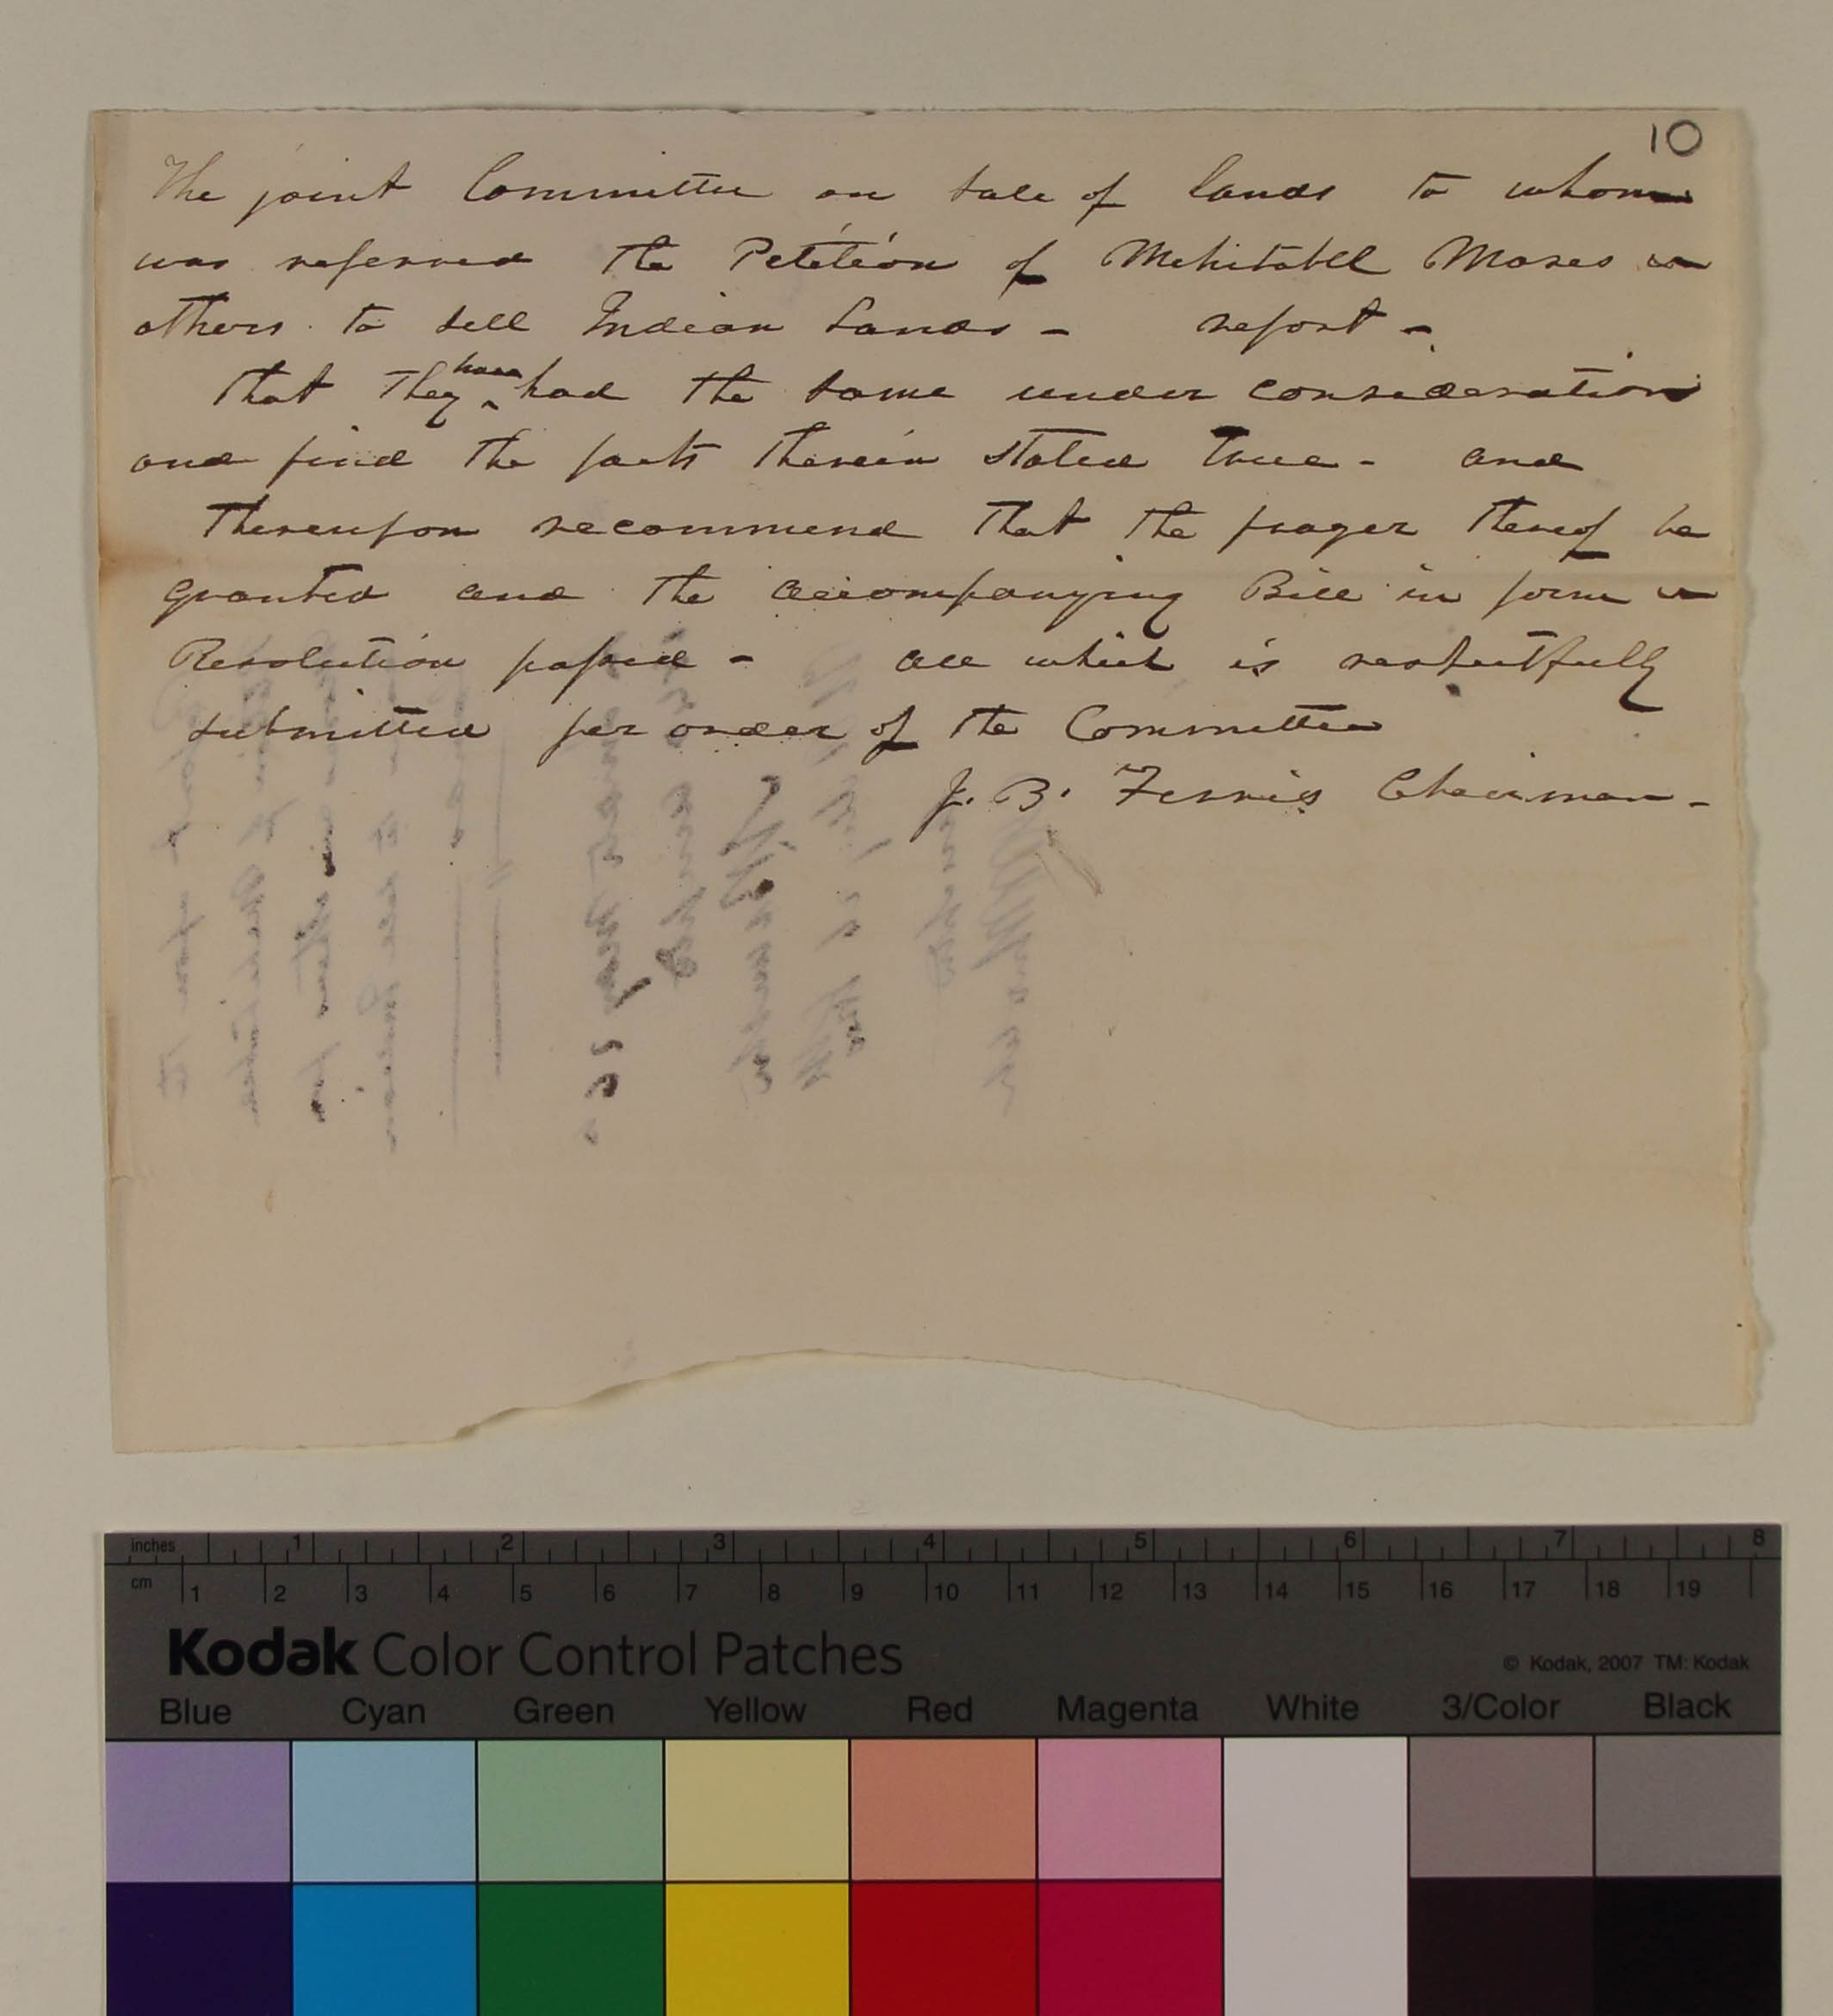 10
The joint Committee on Sale of lands to whom
was referred the Petition of Mehitabell Moses &
others to sell Indian Lands - report -
That they have had the same under consideration
and find the facts therein stated true - and
thereupon recommend that the prayer thereof be
granted and the accompanying Bill in form &
Resolution passed - all which is respectfully
submitted per order of the Committee
J. B. Ferris Chairman -
inches 1 2 3 4 5 6 7 8
cm 1 2 3 4 5 6 7 8 9 10 11 12 13 14 15 16 17 18 19
Kodak Color Control Patches
© Kodak, 2007 TM: Kodak
Blue Cyan Green Yellow Red Magenta White 3/Color Black